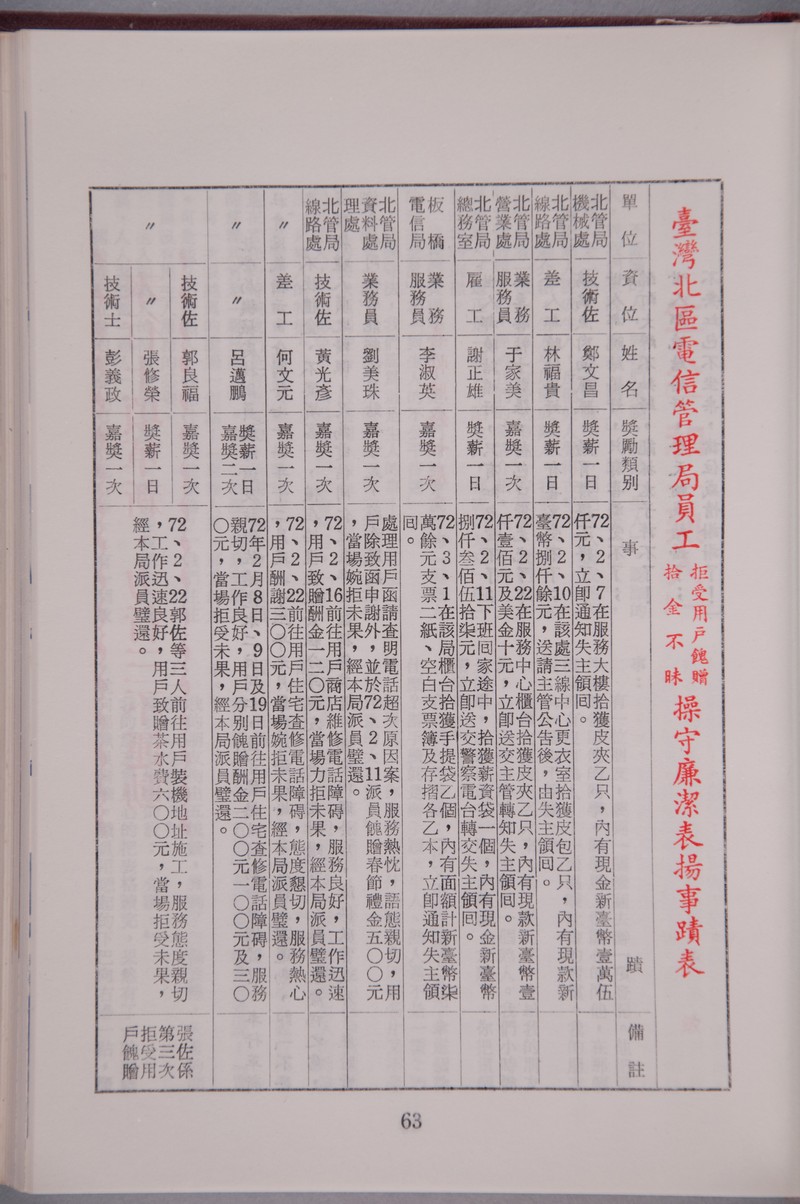 臺灣北區電信管理局員工拒受用戶餽贈拾金不昧操守廉潔表揚事蹟表
單位 資位 姓名 獎勵類別 事蹟 備註
北管局機械處 技術佐 鄭文昌 獎薪一日
72、2、7在服務大樓拾獲皮夾乙只，內有現金新臺幣壹萬伍
仟元，立即通知失主領回。
北管局線路處 差工 林福貴 獎薪一日
72、2、10在該處三線中心更衣室拾獲皮包乙只，內有現款新
臺幣捌仟餘元，送請主管公告後，由失主領回。
北管局營業處 業務服務員 于家美 嘉獎一次
72、2、22在服務中心櫃台拾獲皮夾乙只，內有現款新臺幣壹
仟壹佰元及美金十元，立即送交主管轉知失主領回。
北管局總務室 雇工 謝正雄 獎薪一日
72、2、11下班回家途中，拾獲薪資袋一個，內有現金新臺幣
捌仟叁佰伍拾柒元，立即送交警察電台轉交失主領回。
板橋電信局 業務服務員 李淑英 嘉獎一次
72、3、1在該局櫃台拾獲手提袋乙個，內有面額計新臺幣柒
萬餘元支票二紙、空白支票簿及存摺各乙本，立即通知失主領
回。
北管局資料處理處 業務員 劉美珠 嘉獎一次
處理用戶函請查明電話超次原因案，服務熱忱，語態親切，用
戶除致函申謝外，並於72、2、11派員餽贈春節禮金五〇〇元
，當場婉拒未果，經本局派員璧還。
北管局線路處 技術佐 黃光彥 嘉獎一次
72、2、16前往用戶商店維修電話障碍，服務良好，工作迅速
，用戶致贈酬金一二〇元，當場力拒未果，經本局派員璧還。
〃 差工 何文元 嘉獎一次
72、2、22前往用戶住宅查修電話障碍，態度懇切，服務熱心
，用戶酬謝三〇〇元，當場婉拒未果，經本局派員璧還。
〃 〃 呂邁鵬 獎薪一日嘉獎二次
72年2月8日、9日及19日前往用戶住宅查修電話障碍，服務
親切，工作良好，用戶分別餽贈酬金二〇〇元一〇〇元及三〇
〇元，當場拒受未果，經本局派員璧還。
〃 技術佐 郭良福 嘉獎一次
〃 張修榮 獎薪一日
技術士 彭義政 嘉獎一次
72、2、22郭佐等三人前往用戶裝機地址施工，服務態度親切
，工作迅速良好，用戶致贈茶水費六〇〇元，當場拒受未果，
經本局派員璧還。
張佐係
第三次
拒受用
戶餽贈
63